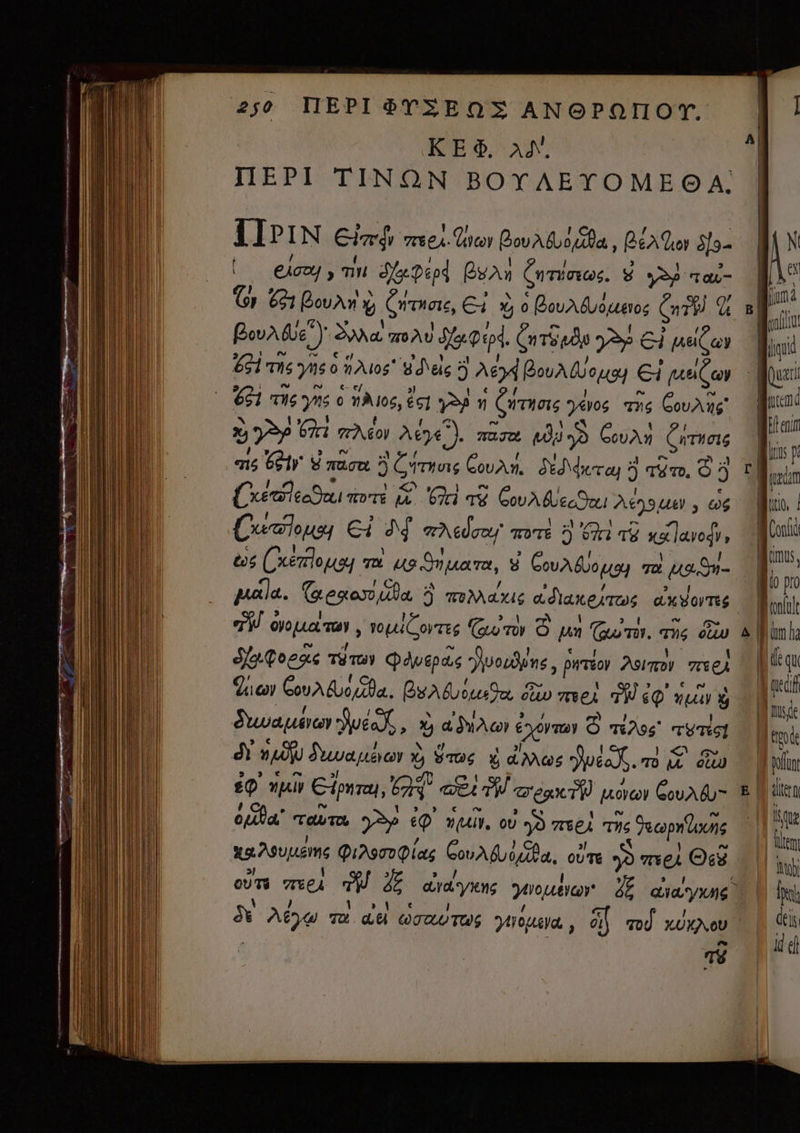 250 ΠΕΡΙ ΦΥΣΕΩΣ ΑΝΘΡΩΠΟΥ.
ΚΕΦ. λδ'.
ΠΕΡΙ ΤΙΝΩΝ ΒΟΥΛΕΥΟΜΕΘΑ.
ΠΡΙΝ εἰπεῖν περὶ τίνων βουλευόμεθα, βέλτιον διο-
ρίσαι, τίνι διαφέρει βουλὴ ζητήσεως. οὐ γὰρ ταὐ-
τόν ἐστι βουλὴ καὶ ζήτησις, εἰ καὶ ὁ βουλευόμενος ζητῶν τι
βουλεύεται· ἀλλὰ πολὺ διαφέρει. ζητοῦμεν γὰρ εἰ μείζων
ἐστὶ τῆς γῆς ὁ ἥλιος· οὐδεὶς δὲ λέγει βουλεύομαι εἰ μείζων
ἐστὶ τῆς γῆς ὁ ἥλιος, ἔστι γὰρ ἡ ζήτησις γένος τῆς βουλῆς·
καὶ γὰρ ἐπὶ πλέον λέγεται. πᾶσα μὲν γὰρ βουλὴ ζήτησις
τίς ἐστιν· οὐ πᾶσα δὲ ζήτησις βουλή. δέδεικται δὲ τοῦτο. τὸ δὲ
σκέπτεσθαι ποτὲ μὲν ἐπὶ τοῦ βουλεύεσθαι λέγομεν, ὡς
σκέπτομαι εἰ δεῖ πλεῦσαι· ποτὲ δὲ ἐπὶ τοῦ κατανοεῖν,
ὡς σκέπτομαι τὰ μαθήματα, οὐ βουλεύομαι τὰ μαθή-
ματα. ταρασσόμεθα δὲ πολλάκις ἀδιακρίτως ἀκούοντες
τῶν ὀνομάτων, νομίζοντες ταυτὸν τὸ μὴ ταυτόν. τῆς οὖν
διαφορᾶς τούτων φανερᾶς γενομένης, ῥητέον λοιπὸν περὶ
τίνων βουλευόμεθα. βουλευόμεθα οὖν περὶ τῶν ἐφ' ἡμῖν καὶ
δυναμένων γενέσθαι, καὶ ἄδηλον ἐχόντων τὸ τέλος· τουτέστι
δι' ἡμῶν δυναμένων καὶ οὕτως καὶ ἄλλως γενέσθαι. τὸ μὲν οὖν
ἐφ' ἡμῖν εἴρηται, ἐπειδὴ περὶ τῶν πρακτῶν μόνων βουλευ-
όμεθα· ταῦτα γὰρ ἐφ' ἡμῖν. οὐ γὰρ περὶ τῆς θεωρητικῆς
καλουμένης φιλοσοφίας βουλευόμεθα, οὔτε γὰρ περὶ Θεοῦ
οὔτε περὶ τῶν ἐξ ἀνάγκης γινομένων· ἐξ ἀνάγκης
δὲ λέγω τὰ ἀεὶ ὡσαύτως γινόμενα, οἷον τοῦ κύκλου
τοῦ